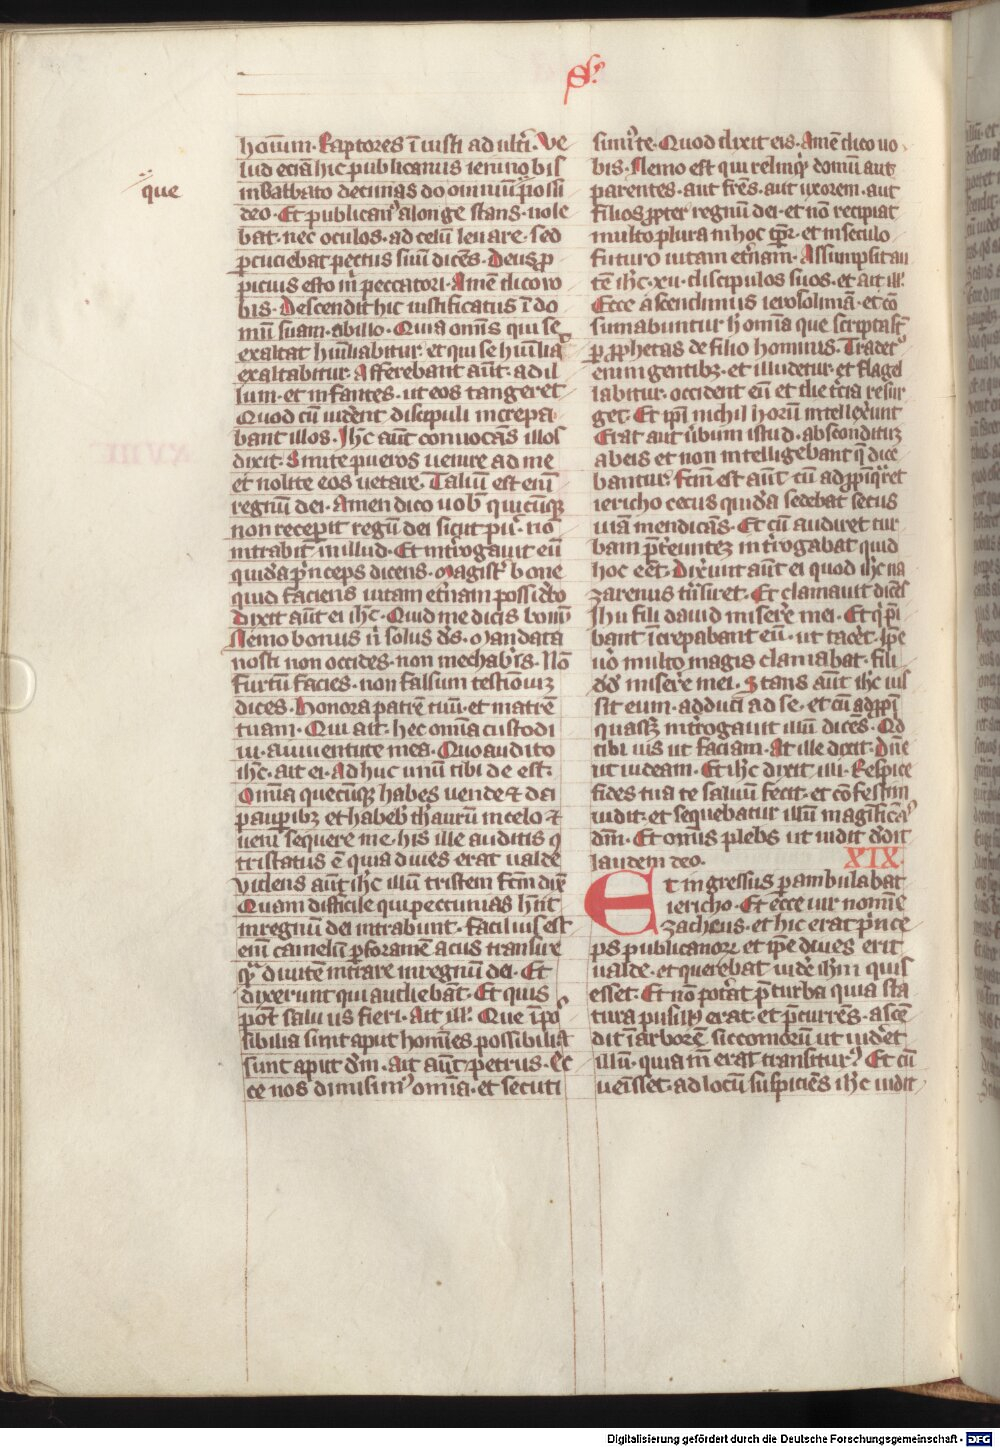 Sᵉ
que
hoīūm. Raptores īiusti adult̓i. Ve
lud eciā hic publicanus ieiuno bis
in sabbato decimas do omniū p̄ossi
deo. Et publican᷒ alonge stans. nole
bat. nec oculos. ad celū leuare. sed
ꝑcuciebat pectus suū dicēs. Deus ꝓ
picius esto m̄ peccatori. Amē dico uo
bis. Descendit hic iustificatus ī do
mū suam. abillo. Quia omīs qui se
exaltat humiliabitur. et qui se humiliat
exaltabitur. Afferebant aūt. ad il
lum. et infantes. ut eos tangeret
Quod cū uidēnt discipuli increpa
bant illos. Ih̄c aūt conuocās illos
dixit. Sinite pueros uenire ad me
et nolite eos uetare. Taliū est enī
regnū dei. Amen dico uob᷒ quicūqꝫ
non receperit regnū dei sicut pu᷒. nō
intrabit in illud. Et int̓rogauit eū
quidā pͥnceps dicens. Magist̓ bone
quid faciens uitam et̓nam possidebo
Dixit aūt ei ih̄c. Quid me dicis bonū
Nemo bonus nͥ solus ds̄. Mandata
nosti non occides. non mechab̓is. Nō
furtū facies. non falsum testīoniū
dices. Honora patrē tuū. et matrē
tuam. Qui ait. hec omīa custodi
ui. aiuuentute mea. Quo audito
ih̄c. ait ei. Adhuc unū tibi deest.
Omīa quecūqꝫ habes uende ⁊ da
pauꝑibꝫ et habeb᷒ thaurū in celo ⁊
ueni sequere me. his ille auditis 9
tristatus ē quia diues erat ualde
Videns aūt ih̄c illū tristem fc̄m dix̄
Quam difficile qui peccunias hn̄t
inregnū dei intrabunt. Facilius est
enī camelū ꝑforamē acus transire
qᷓ diuitē int̓are inregnū dei. Et
dixerunt qui audiebāt. Et quis
pōt saluus fieri. Ait ill̓. Que īpos
sibilia sunt aput homīes possibilia
sunt aput dm̄. Ait aūt. petrus. Ec
ce nos dimisim᷒ omīa. et secuti
sum᷒ te. Quod dixit eis. Amē dico uo
bis. Nemo est qui relinqͥt domū aut
parentes. aut fr̄es. aut uxorem. aut
filios ꝓpter regnū dei. et nō recipiat
multo plura inhoc tp̄r. et inseculo
futuro uitam et̓nam. Assumpsit au
tē ih̄c. xii. discipulos suos. et ait ill̓.
Ecce ascendimus ierosolimā. et cō
sumabuntur hͦ omīa que scripta st̄
ꝑ ꝓphetas de filio hominis. Tradet᷒
enim gentibꝫ. et illudetur. et flagel
labitur. occident eū et die t̓cia resur
get. Et ip̄i nichil horū intellexerunt
Erat aut ūbum istud. absconditū
abeis et non intelligebant q̄ dice
bantur. Fc̄m est aūt cū adꝓpīqͣret
iericho cecus quidā sedebat secus
uiā mendicās. Et cū audiret tur
bam p̄t̓euntē int̓rogabat quid
hoc eēt. Dix̓unt aūt ei quod ih̄c na
zarenus tn̄siret. Et clamauit dicēs
Ihū fili dauid miserere mei. Et qͥ p̄i
bant īcrepabant eū. ut tacēt. Ip̄e
uͦ multo magis clamabat. fili
dd̄ miserere mei. Stans aūt ih̄c ius
sit eum. adduci ad se. et cū adꝓpī
quasꝫ int̓rogauit illū dicēs. Qd
tibi uis ut faciam. At ille dixit. Dn̄e
ut uideam. Et ih̄c dixit illi. Respice
fides tua te saluū fecit. et cōfestim
uidit. et sequebatur illū magīficās
dm̄. Et om̄is plebs ut uidit dedit
laudem deo. XIX.
Et ingressus ꝑambulabat
iericho. Et ecce uir nomīe
zacheus. et hic erat pͥnce
ps publicanorꝝ et ip̄e diues erit
ualde. et querebat uidēe ih̄m quis
esset. Et nō pot̓at p̄ turba quia sta
tura pusill᷒ erat. et p̄currēs. ascē
dit ī arborē siccomorū ut uidēet
illū. quia īn erat transitur᷒. Et cū
uenisset. ad locū suspiciēs ih̄c uidit
Digitalisierung gefördert durch die Deutsche Forschungsgemeinschaft - DFG